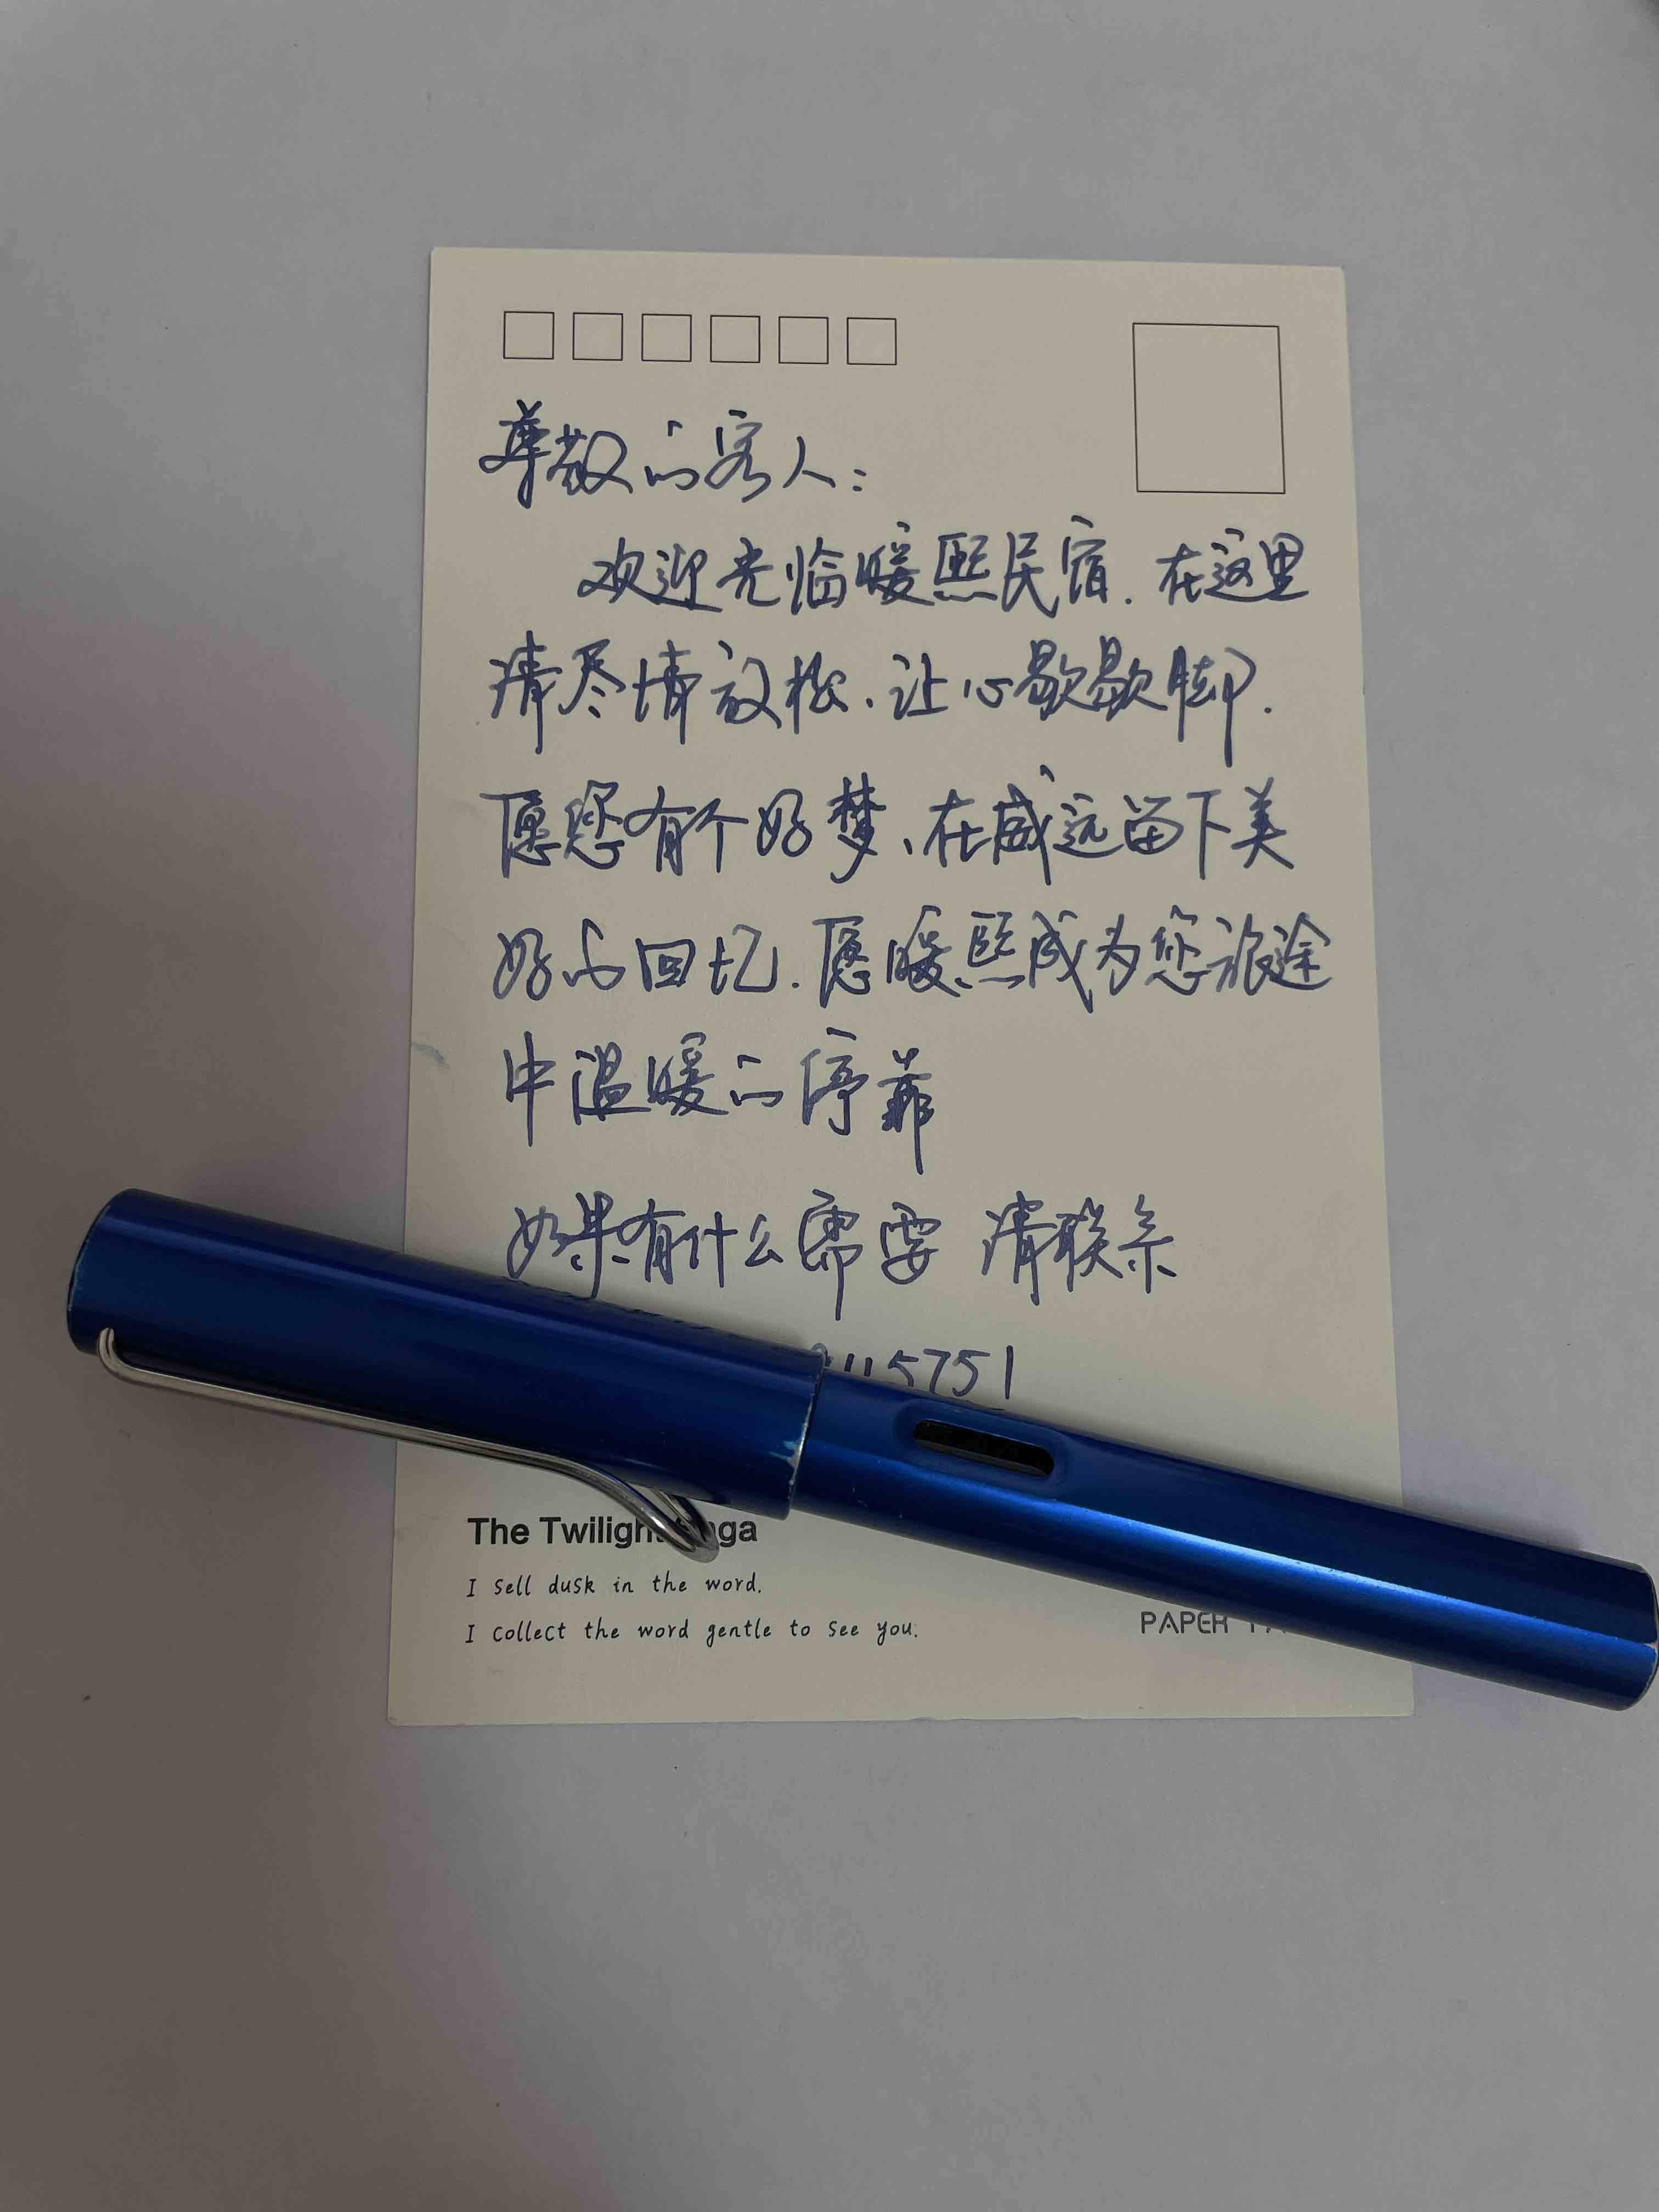 尊敬的客人：
欢迎光临暖熙民宿.在这里
请尽情放松、让心歇歇脚.
愿您有个好梦、在威远留下美
好的回忆.愿暖熙成为您旅途
中温暖的停靠
如果有什么需要 请联系
115751
The Twilight
I sell dusk in the word.
I collect the word gentle to see you.
PAPER